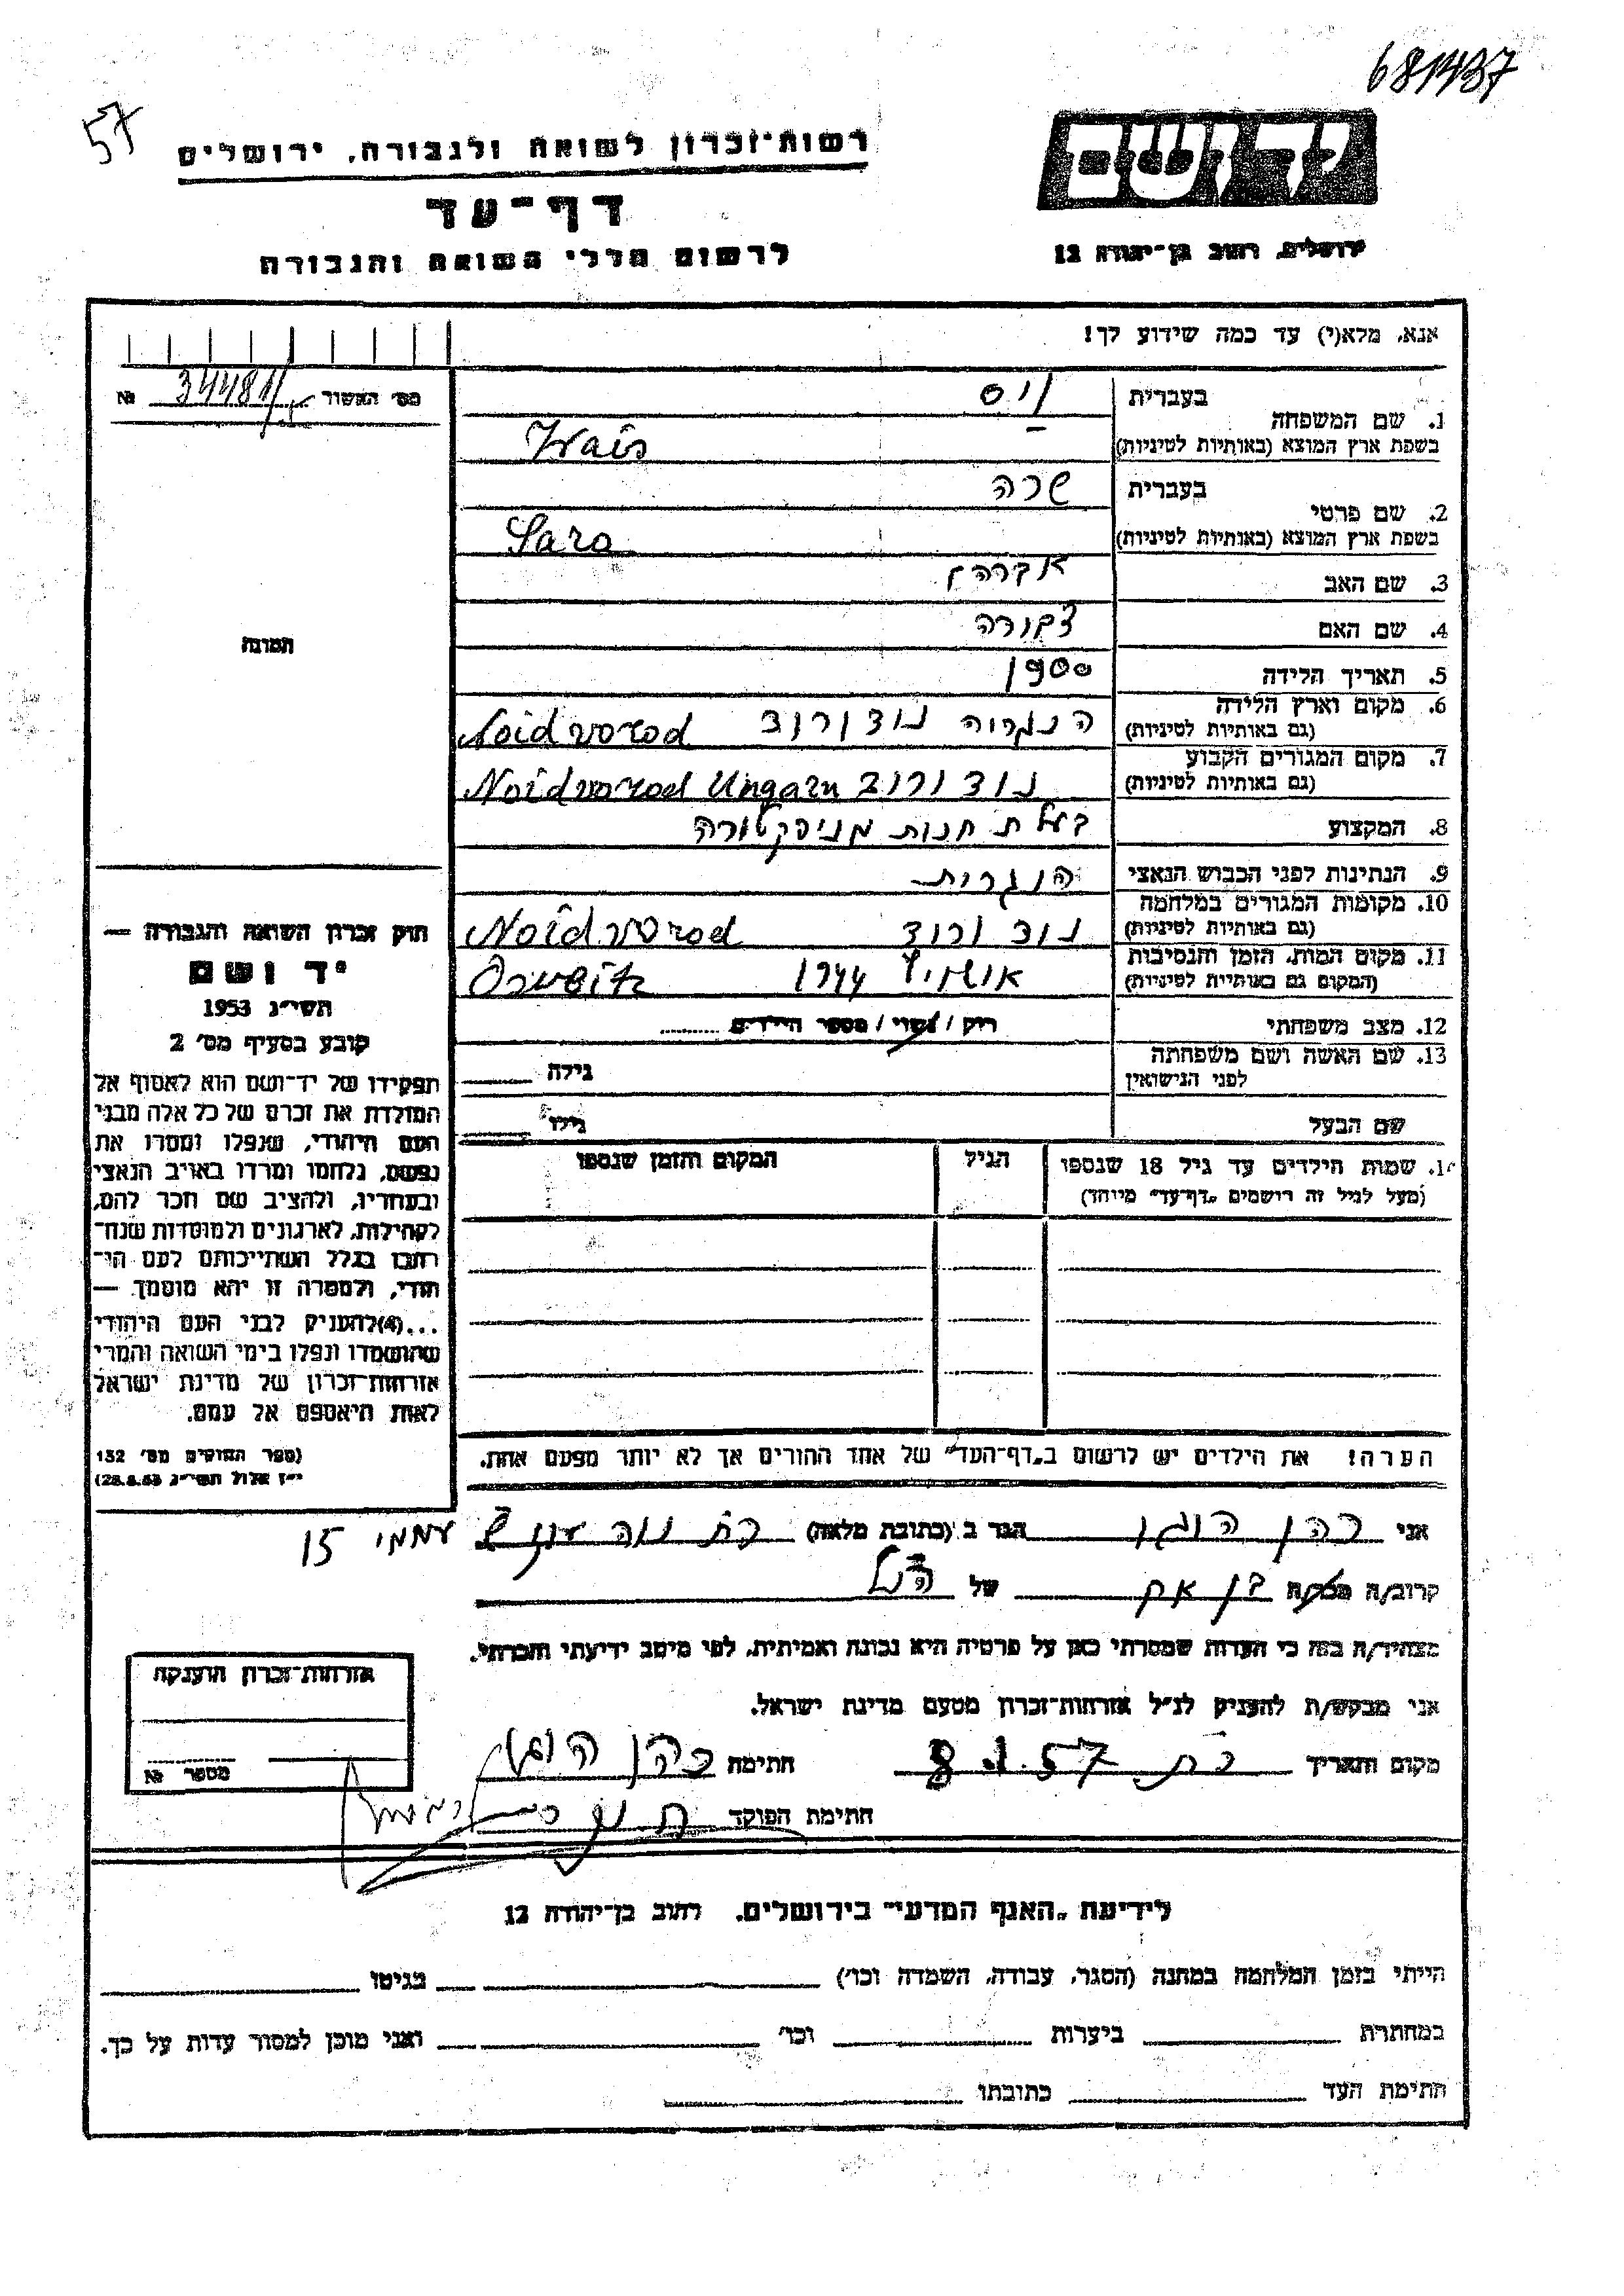 681437
57
יד ושם
רשות-זכרון לשואה ולגבורה, ירושלים
דף-עד
לרשום חללי השואה והגבורה
ירושלים, רחוב בן-יהודה 12
אנא, מלא(י) עד כמה שידוע לך!
מס׳ האשור № 34481
1. שם המשפחה
בעברית וייס
בשפת ארץ המוצא (באותיות לטיניות) Wais
2. שם פרטי
בעברית שרה
בשפת ארץ המוצא (באותיות לטיניות) Sara
3. שם האב אברהם
4. שם האם צפורה
5. תאריך הלידה 1900
6. מקום וארץ הלידה הונגריה נוצורוד Noidvorod
(גם באותיות לטיניות)
7. מקום המגורים הקבוע נוצורוד Noidvorod Ungarn
(גם באותיות לטיניות)
8. המקצוע בעלת חנות מניפקטורה
9. הנתינות לפני הכבוש הנאצי הונגרית
10. מקומות המגורים במלחמה נוצורוד Noidvorod
(גם באותיות לטיניות)
11. מקום המות, הזמן והנסיבות אושויץ 1944
(המקום גם באותיית לטיניות)
12. מצב משפחתי רוק / נשוי / מספר הילדים
13. שם האשה ושם משפחתה גילה
לפני הנישואין
שם הבעל גילו
14. שמות הילדים עד גיל 18 שנספו הגיל המקום והזמן שנספו
(מעל לגיל זה רושמים „דף-עד״ מיוחד)
התמונה
חוק זכרון השואה והגבורה —
יד ושם
תשי״ג 1953
קובע בסעיף מס׳ 2
תפקידו של יד-ושם הוא לאסוף אל
המולדת את זכרם של כל אלה מבני
העם היהודי, שנפלו ומסרו את
נפשם, נלחמו ומרדו באויב הנאצי
ובעוזריו, ולהציב שם וזכר להם,
לקהילות, לארגונים ולמוסדות שנח-
רבו בגלל השתייכותם לעם הי-
הודי, ולמטרה זו יהא מוסמך —
...(4) להעניק לבני העם היהודי
שהושמדו ונפלו בימי השואה והמרי
אזרחות-זכרון של מדינת ישראל
לאות היאספם אל עמם.
(ספר החוקים מס׳ 132
י״ז אלול תשי״ג 28.8.53)
הערה! את הילדים יש לרשום ב„דף-העד״ של אחד ההורים אך לא יותר מפעם אחת.
אני כהן הוגו הגר ב (כתובת מלאה) עממי 15
קרוב/ה מכר/ה בן אח של הנ״ל
מצהיר/ה בזה כי העדות שמסרתי כאן על פרטיה היא נכונה ואמיתית, לפי מיטב ידיעתי והכרתי.
אני מבקש/ת להעניק לנ״ל אזרחות-זכרון מטעם מדינת ישראל.
מקום ותאריך 8.1.57 חתימה כהן הוגו
חתימת הפוקד
אזרחות-זכרון הוענקה
מספר №
לידיעת „האגף המדעי״ בירושלים, רחוב בן-יהודה 12
הייתי בזמן המלחמה במחנה (הסגר, עבודה, השמדה וכו׳) בגיטו
במחתרת ביערות וכו׳ ואני מוכן למסור עדות על כך.
חתימת העד כתובתו